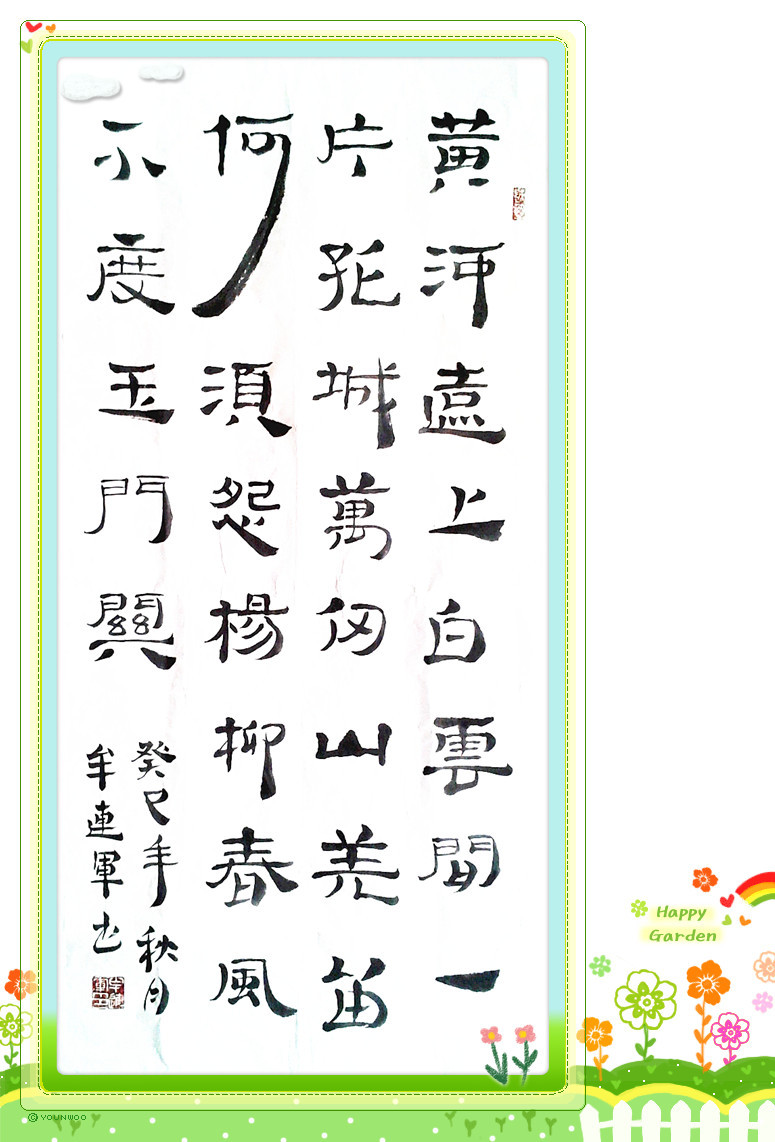 黄河遠上白雲間一
片孤城萬仞山羌笛
何須怨楊柳春風
不度玉門關
癸巳年秋月
牟連軍书
Happy
Garden
© YOUNWOO